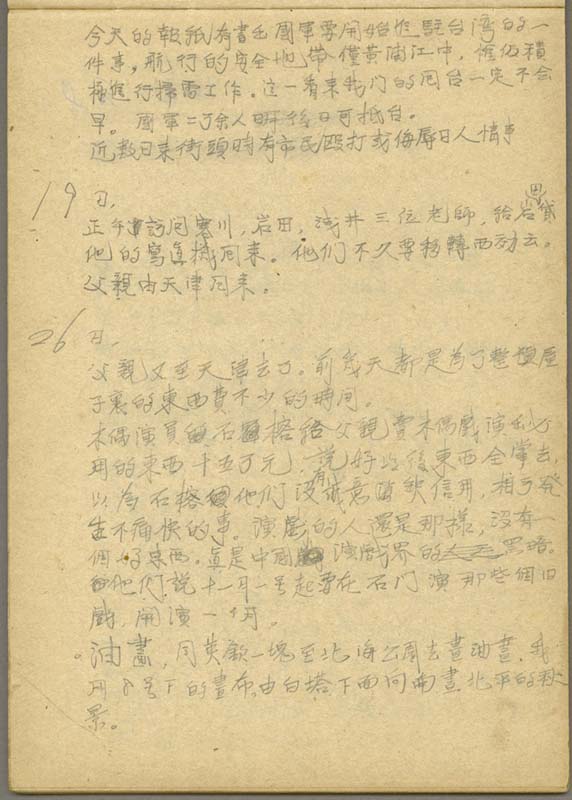 今天的報紙有書它國軍要開始進駐台湾的一
件事，航行的安全地帶僅黃浦江中，惟仍積
極進行掃雷工作。這一看來我们的回台一定不会
早。國軍二万余人明後日可抵台。
近数日来街頭時有市民毆打或侮辱日人情事
19日,
正午訪问寒川，岩田，浅井三位老師，給岩田貸
他的寫真機回来。他们不久要移轉西郊去。
父親由天津回来。
26日,
父親又至天津去了。前幾天都是為了整理屋
子裏的東西費不少的時间。
木偶演員石榕給父親賣木偶戲演劇
用的東西十五万元，說好以後東西全拿去，
以為石榕他们沒有誠意缺信用，相予発
生不痛快的事。演戲的人還是那様，沒有一
個好東西。眞是中國演戲界的黑暗。
他们說十一月一号起要在石门演那些個旧
戲，開演一个月。
。油畫，同英欽一塊至北海公園去畫油畫，我
用8号下的畫布，由白塔下面向南畫北平的秋
景。